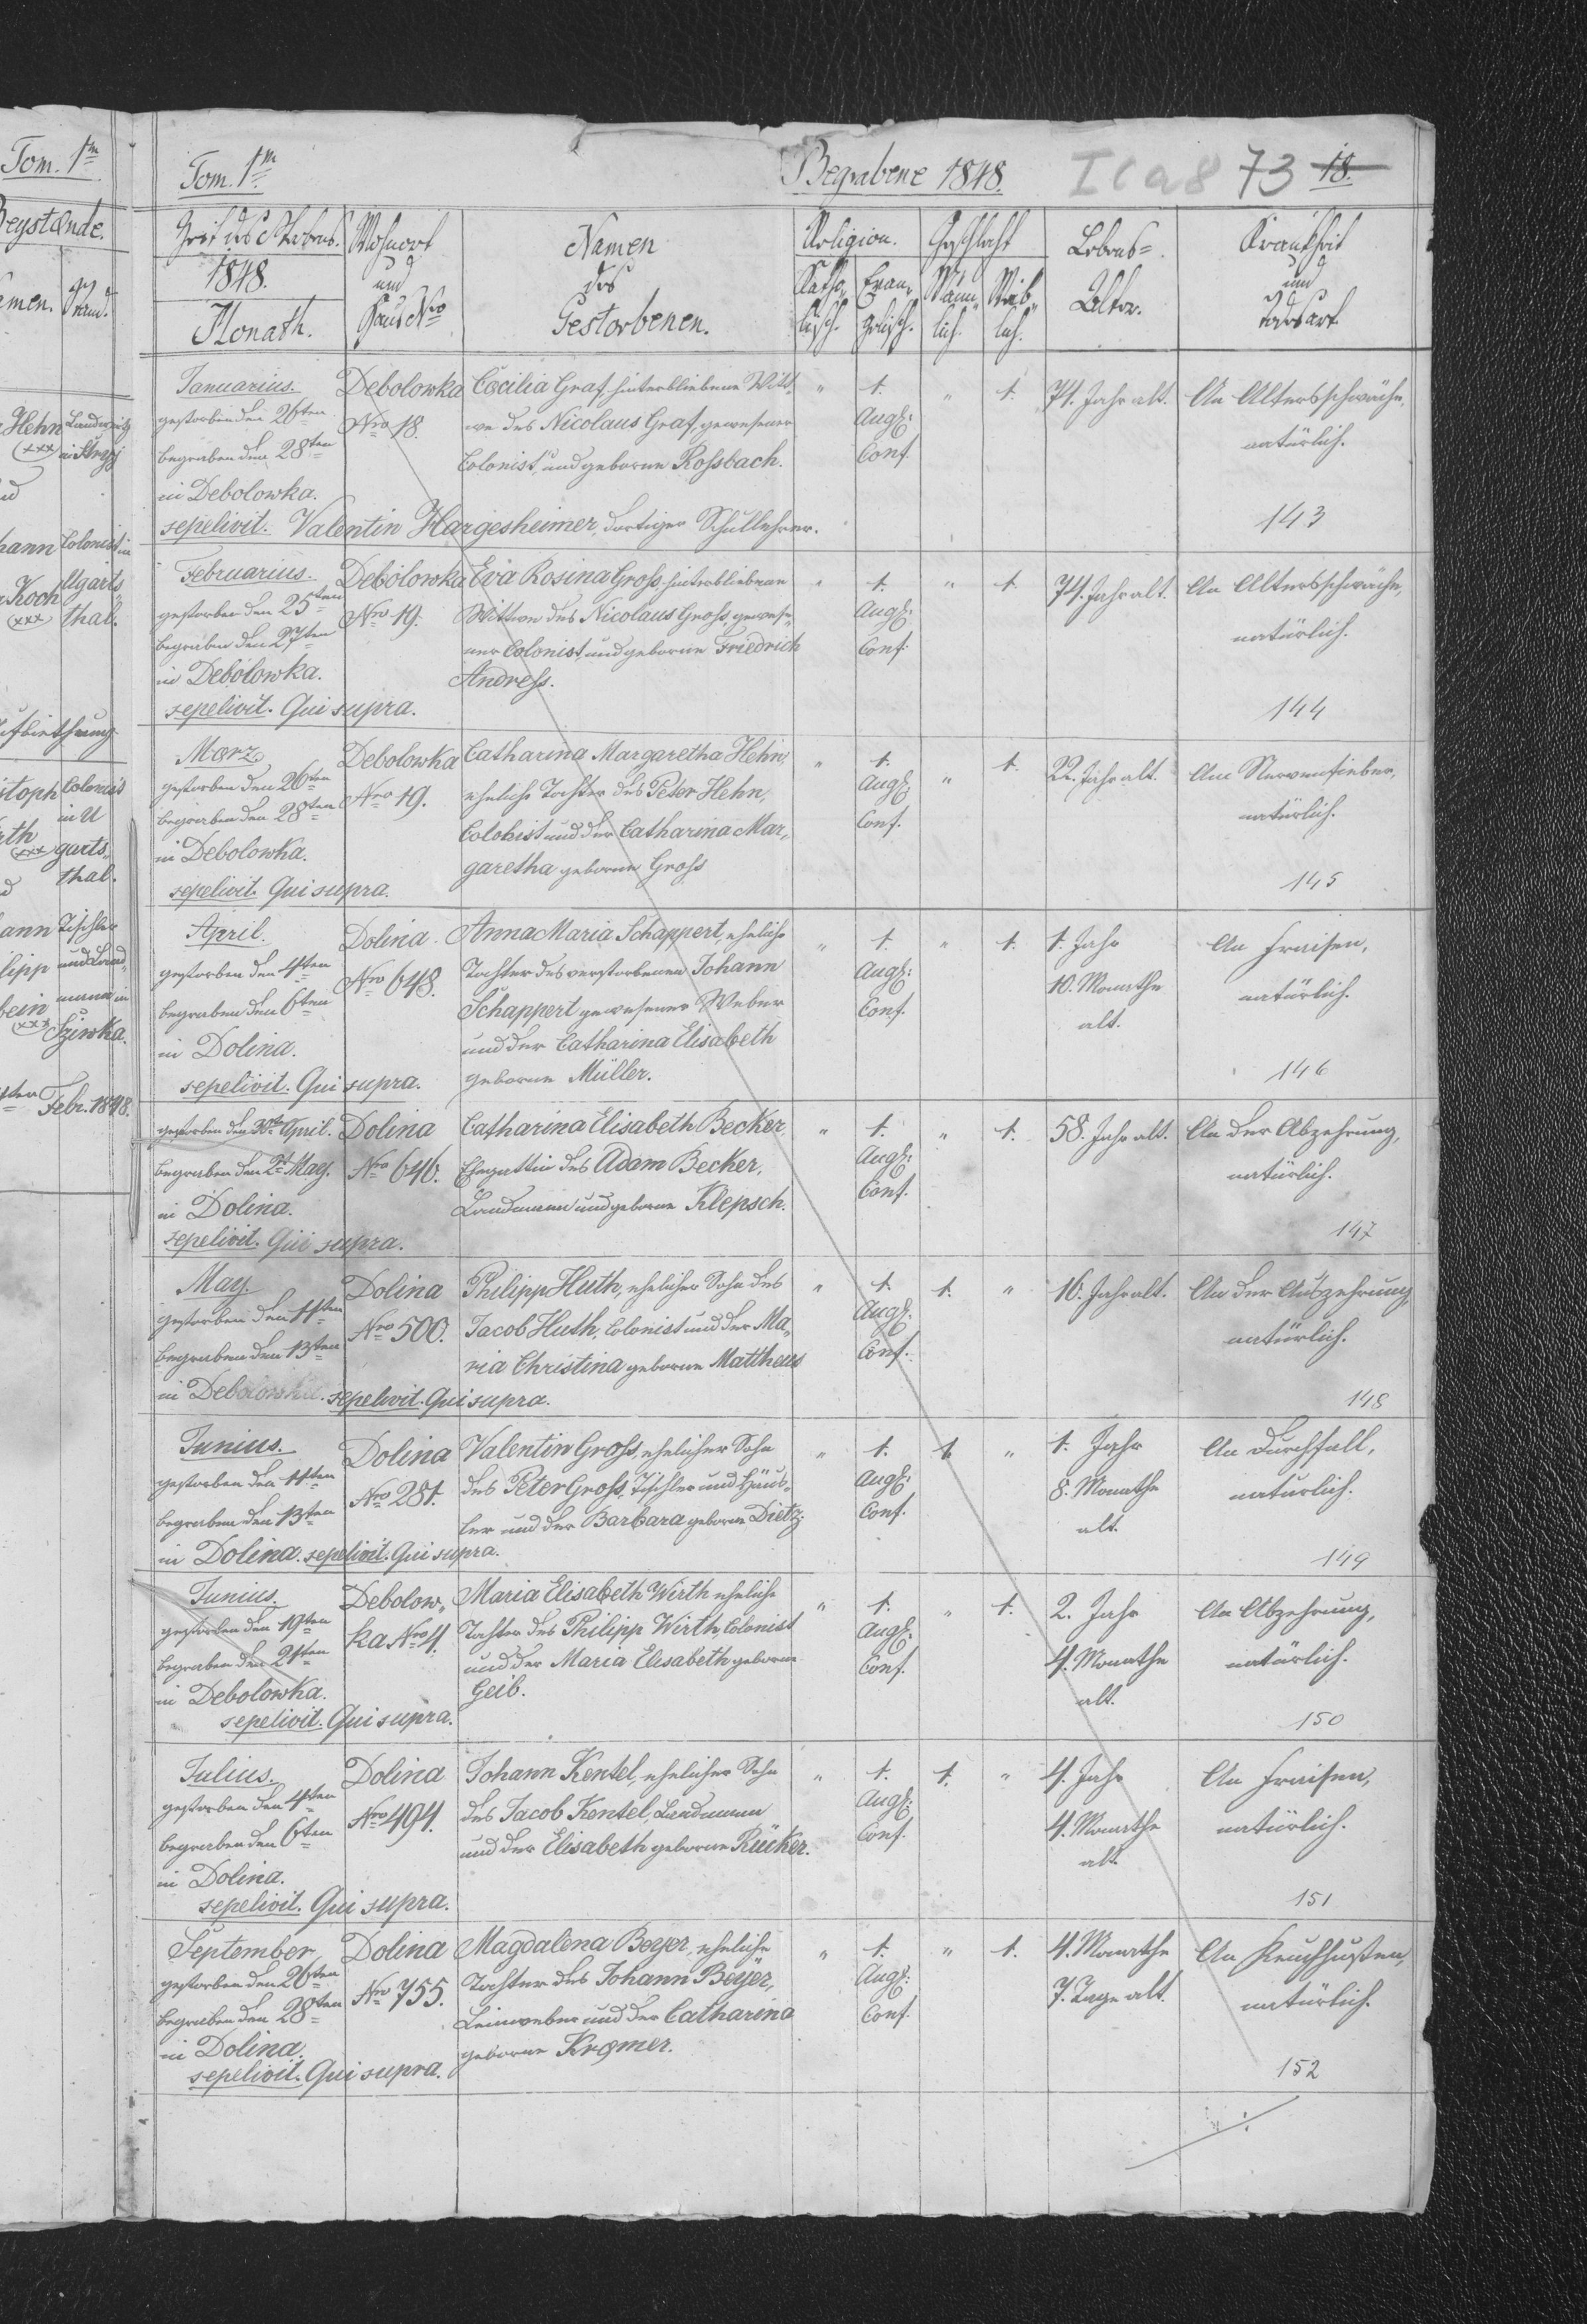 Tom. 1m
Beystände.
Stand.
Hehn Landwirth
(xxx) in Stryj
hann Colonist in
Koch Ugarts„
(xxx) thal.
Aufbiethung
stoph Colonist
in U
(xxx) garts„
thal.
ann Tischler
lipp und Land„
bein mann in
(xxx) Sziwka.
Febr. 1848.
Tom. 1m
Begrabene 1848. I C a 8 73 18.
Zeit des Sterbens. Wohnort Namen Religion. Geschlecht Lebens= Krankheit
1848. und des Katho„ Evan„ Männ„ Weib„ Alter. und
Monath. Haus Nro Gestorbenen. lisch. gelisch. lich. lich. Todesart.
Januarius. Debolowka Cäcilia Graf, hinterbliebene Witt„ „ 1. „ 1. 74. Jahr alt. An Altersschwäche,
gestorben den 26ten Nro 18. we des Nicolaus Graf, gewesener Augs: natürlich.
begraben den 28ten Colonist, und geborne Rossbach. Conf.
in Debolowka.
sepelivit. Valentin Hargesheimer, dortiger Schullehrer. 143
Februarius. Debolowka Eva Rosina Gross, hinterbliebene „ 1. „ 1. 74. Jahr alt. An Altersschwäche,
gestorben den 25ten Nro 19. Wittwe des Nicolaus Gross, gewese„ Augs: natürlich.
begraben den 27ten ner Colonist, und geborne Friedrich Conf.
in Debolowka. Andress.
sepelivit. Qui supra. 144
März Debolowka Catharina Margaretha Hehn, „ 1. „ 1. 22. Jahr alt. Am Nervenfieber,
gestorben den 26ten Nro 19. eheliche Tochter des Peter Hehn, Augs: natürlich.
begraben den 28ten Colonist und der Catharina Mar„ Conf.
in Debolowka. garetha geborne Gross
sepelivit. Qui supra. 145
April. Dolina. Anna Maria Schappert, eheliche „ 1. „ 1. 1. Jahr An Fraisen,
gestorben den 4ten Nro 648. Tochter des verstorbenen Johann Augs: 10. Monathe natürlich.
begraben den 6ten Schappert gewesener Weber Conf. alt.
in Dolina. und der Catharina Elisabeth
sepelivit. Qui supra. geborne Müller. 146
gestorben den 30ten April. Dolina Catharina Elisabeth Becker „ 1. „ 1. 58. Jahr alt. An der Abzehrung,
begraben den 2t May. Nro 646. Ehegattin des Adam Becker, Augs: natürlich.
in Dolina. Landmann und geborne Klepsch. Conf.
sepelivit. Qui supra. 147
May. Dolina Philipp Huth, ehelicher Sohn des „ 1. 1. „ 16. Jahr alt. An der Auszehrung,
gestorben den 11ten Nro 500. Jacob Huth, Colonist und der Ma„ Augs: natürlich.
begraben den 13ten ria Christina geborne Mattheus Conf.
in Debolowka. sepelivit. Qui supra. 148
Junius. Dolina Valentin Gross, ehelicher Sohn „ 1. 1. „ 1. Jahr An Durchfall,
gestorben den 11ten Nro 281. des Peter Gross, Tischler und Häus„ Augs: 8. Monathe natürlich.
begraben den 13ten ler und der Barbara geborne Dietz. Conf. alt.
in Dolina. sepelivit. Qui supra. 149
Junius. Debolow„ Maria Elisabeth Wirth eheliche „ 1. „ 1. 2. Jahr An Abzehrung,
gestorben den 19ten ka Nro 4. Tochter des Philipp Wirth, Colonist Augs: 4. Monathe natürlich.
begraben den 21ten und der Maria Elisabeth geborne Conf. alt.
in Debolowka. Geib.
sepelivit. Qui supra. 150
Julius. Dolina Johann Kentel, ehelicher Sohn „ 1. 1. „ 4. Jahr An Fraisen,
gestorben den 4ten Nro 494. des Jacob Kentel, Landmann Augs: 4. Monathe natürlich.
begraben den 6ten und der Elisabeth geborne Rücker. Conf. alt.
in Dolina.
sepelivit. Qui supra. 151
September Dolina Magdalena Beyer, eheliche „ 1. „ 1. 4. Monathe An Keuchhusten,
gestorben den 26ten Nro 755. Tochter des Johann Beyer, Augs: 7. Tage alt. natürlich.
begraben den 28ten Leinweber und der Catharina Conf.
in Dolina. geborne Krämer.
sepelivit. Qui supra. 152